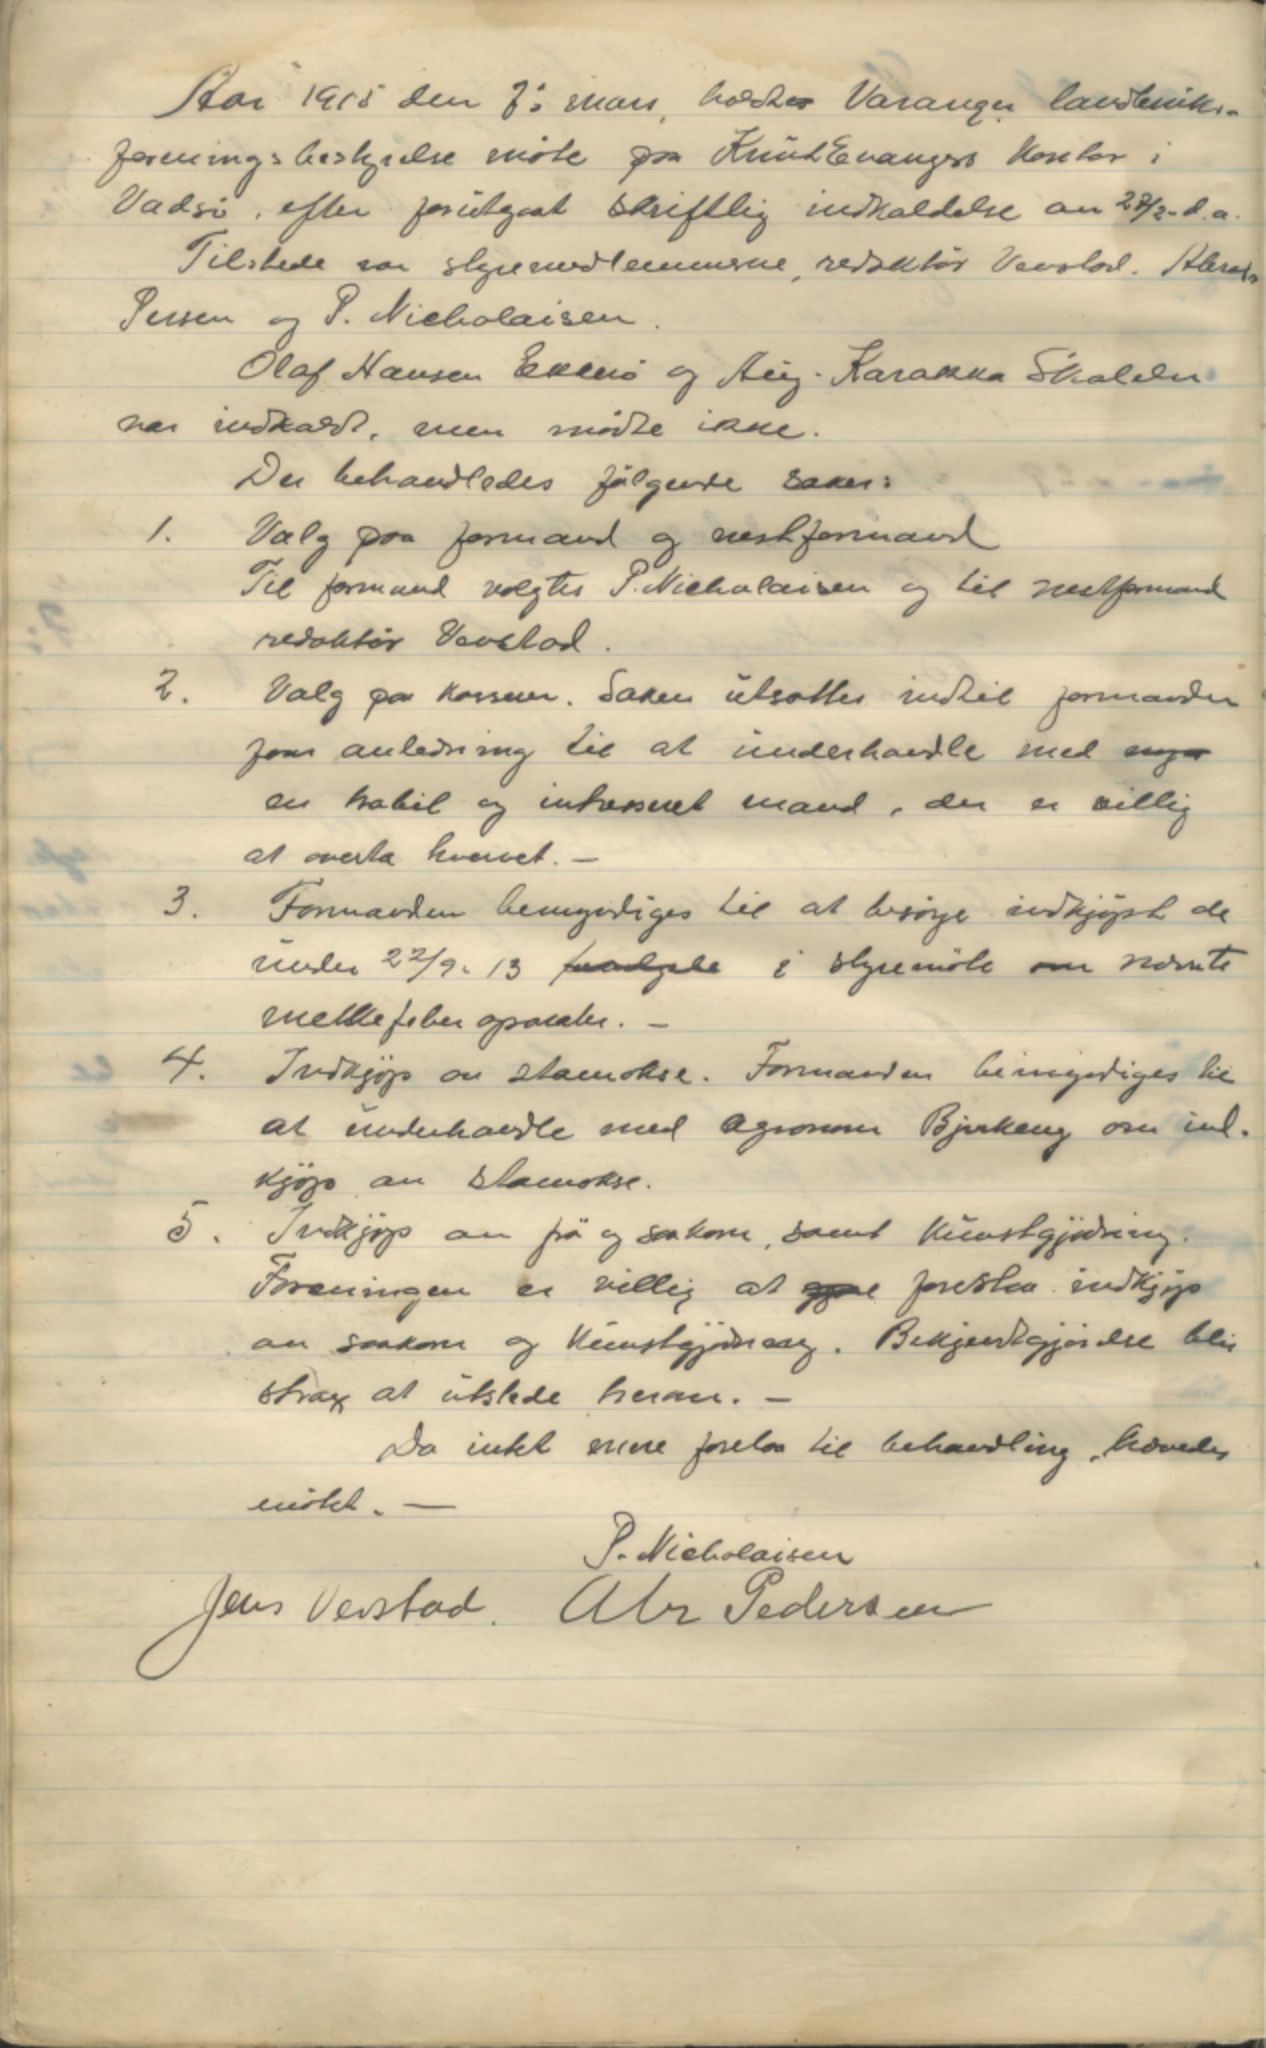 Aar 1915 den 7: mars, holdtes Varanger landbruks-
foreningsbestyrelse möte paa Knut Evangers kontor i
Vadsö, efter forutgaat skriftlig indkaldelse av 27/2- d.a.
Tilstede var styremedlemmerne, redaktör Vevstad.
Persen og P. Nicholaisen.
Olaf Hansen Ekkerö og Aug. Karakka Skalelv
var indkaldt, men mödte ikke.
Der behandledes fölgende saker:
1. Valg paa formand og nestformand
Til formand valgtes P. Nicholaisen og til nestformand
redaktör Vevstad.
2. Valg paa kasserer. Saken utsattes indtil formanden
faar anledning til at underhandle med
en habil og interesseret mand, der er villig
at overta hvervet. —
3. Formanden bemyndiges til at besörge indkjöpt de
under 22/9- 13 i styremöte nævnte
melkefeber aparater. —
4. Indkjöp av stamokse. Formanden bemyndiges til
at underhandle med agronom Bjerkeng om ind-
kjöp av stamokse.
5. Indkjöp av frö og saakorn, samt kunstgjödning.
Foreningen er villig at forestaa indkjöp
av saakorn og kunstgjödning. Bekjendtgjörelse blir
strax at utstede herom. —
Da intet mere forelaa til behandling, hævedes
mötet. —
P. Nicholaisen
Jens Vevstad. Abr Pedersen